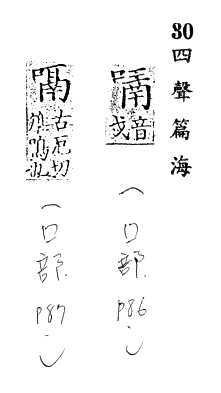 30四聲篇海
音戈
(口部 P86.)
嗝古厄切雉鳴也
(口部 P87.)